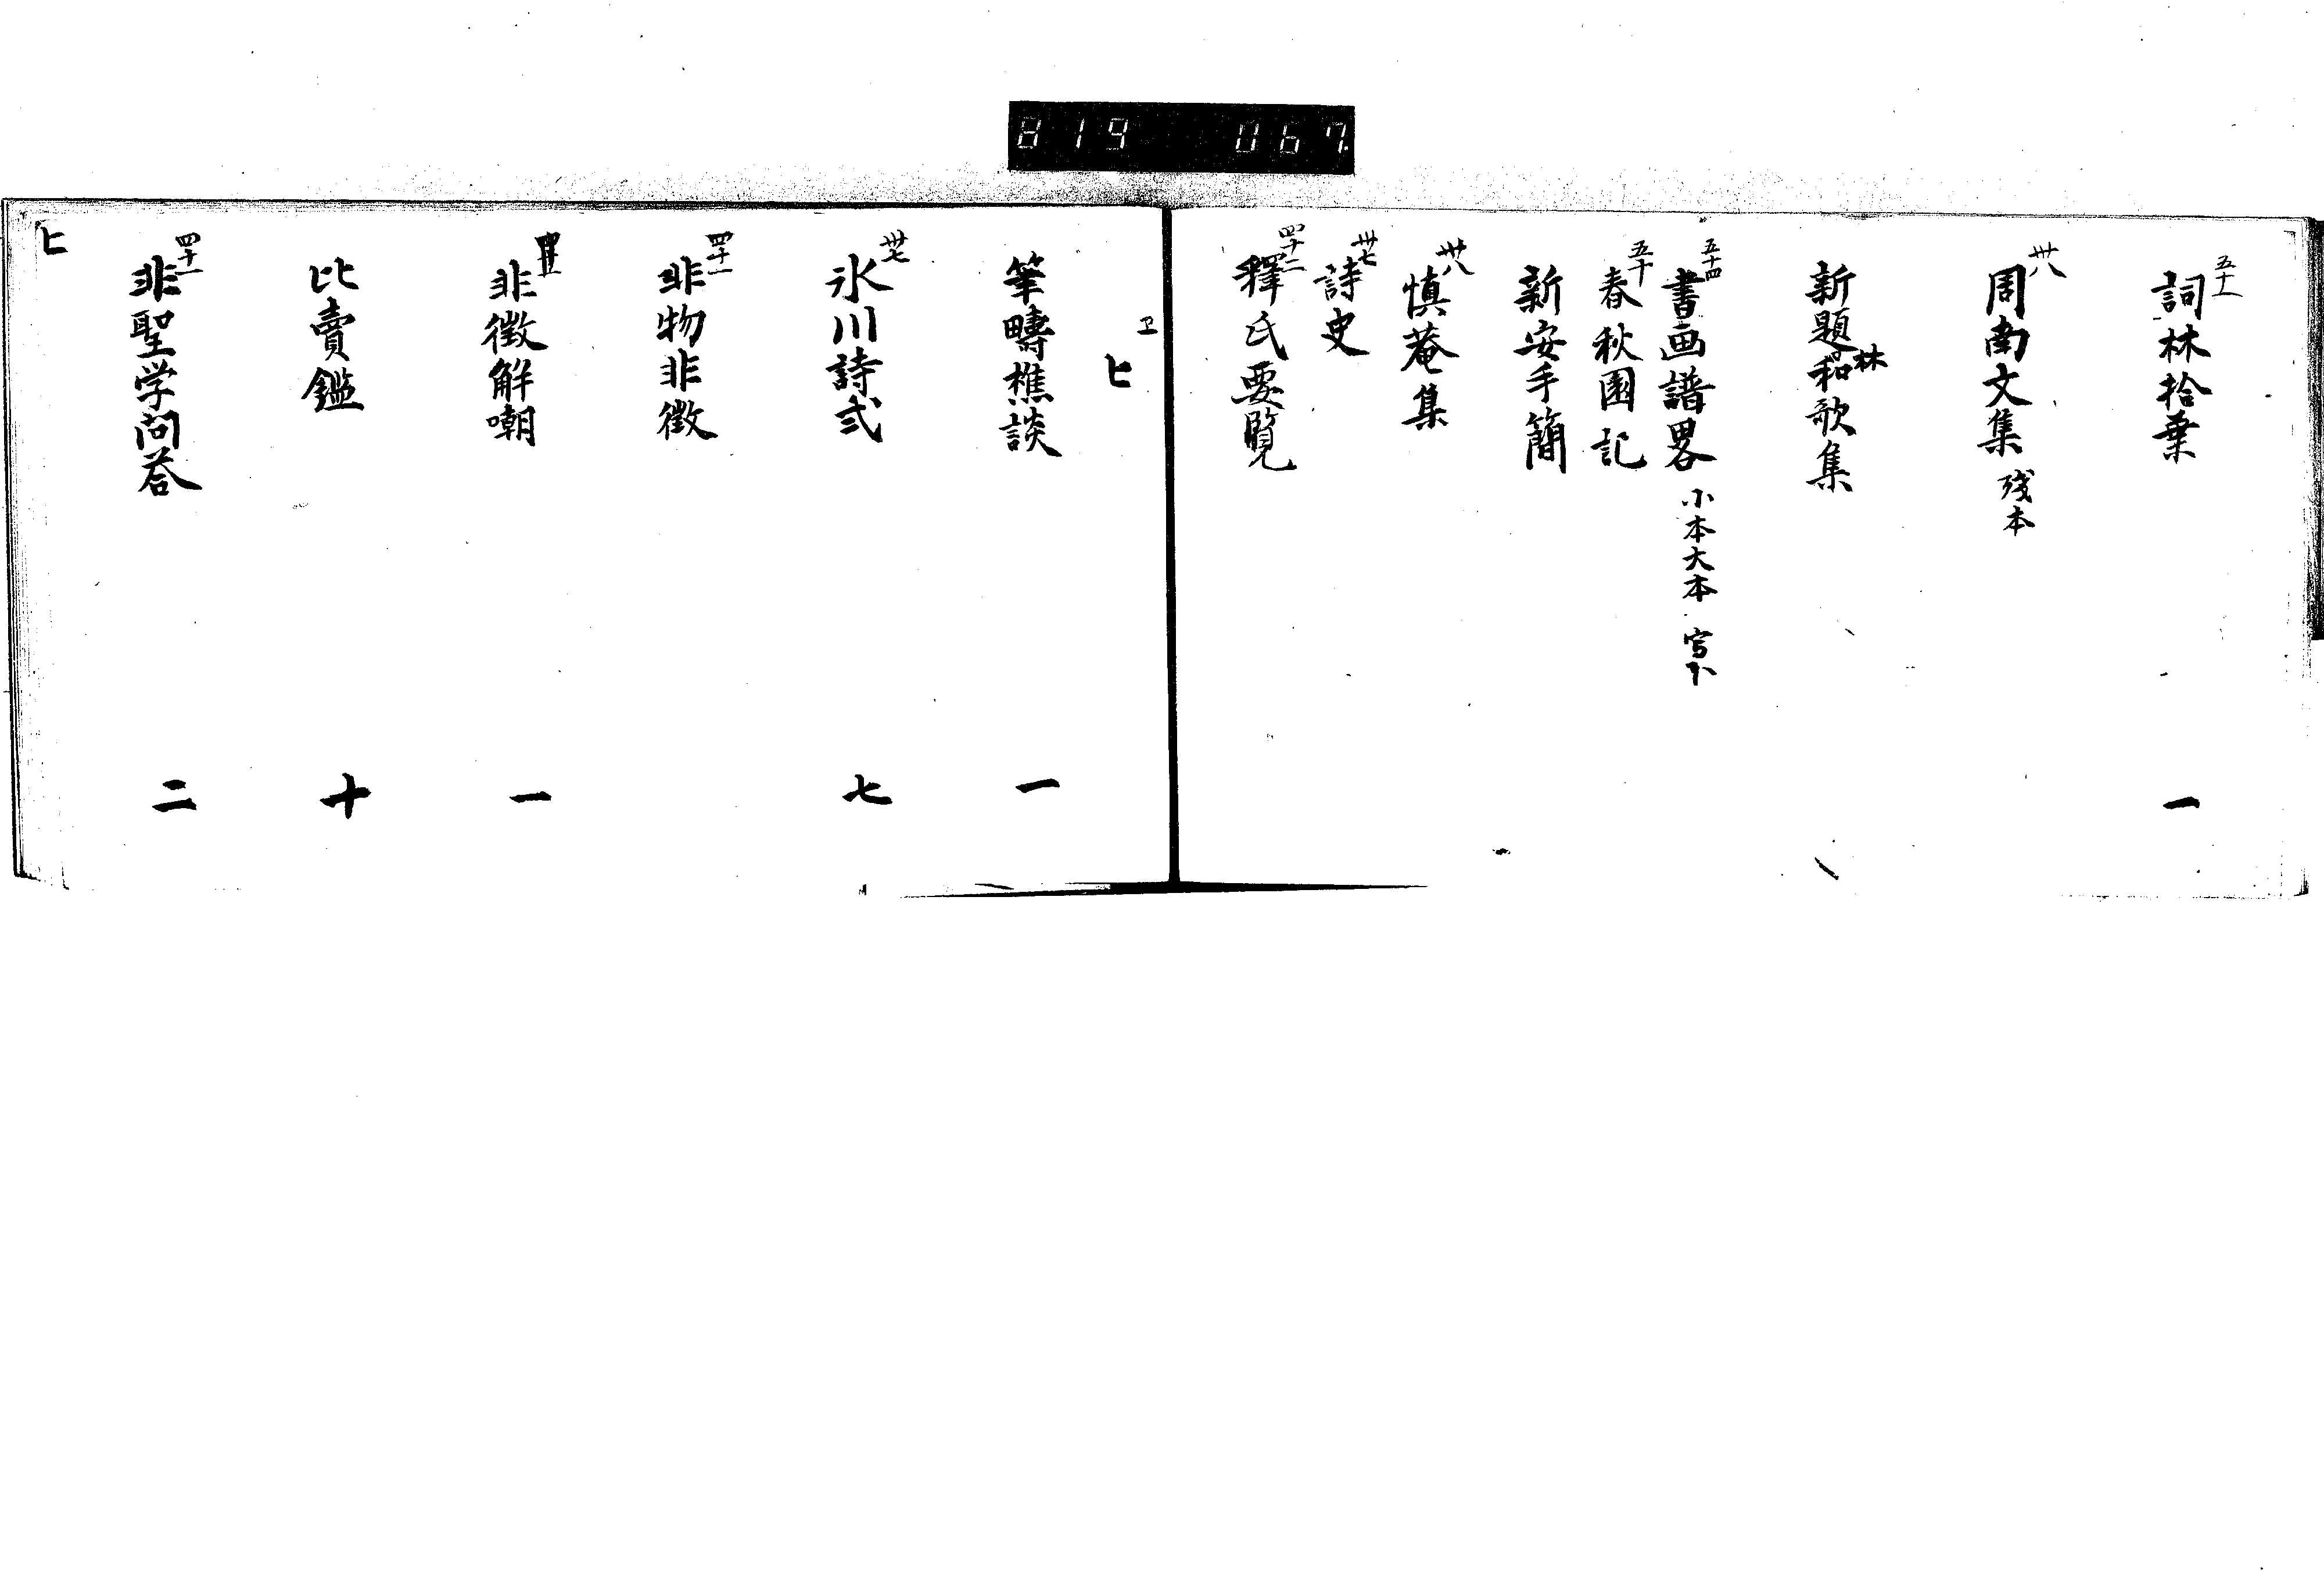 819 067
五十一 詞林拾葉 一
卅八 周南文集 残本
新題林和歌集
五十四 書画譜畧 小本大本 写本
五十 春秋園記
新安手簡
卅八 慎菴集
卅七 詩史
四十二 釋氏要覧
ヒ
筆疇樵談 一
卅七 氷川詩式 七
四十一 非物非徴
非徴解嘲 一
比賣鑑 十
四十一 非聖学問答 二
ヒ